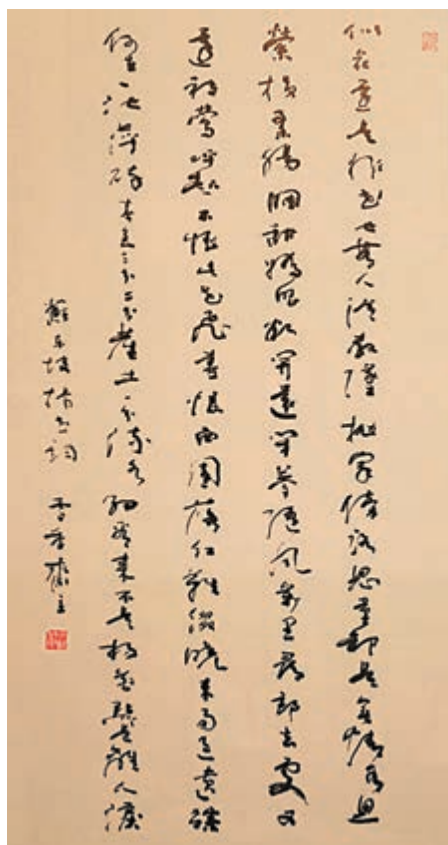 似花還似非花也無人惜從教墜拋家傍路思量卻是無情有思
縈損柔腸困酣嬌眼欲開還閉夢隨風萬里尋郎去處又
還被鶯呼起不恨此花飛盡恨西園落紅難綴曉來雨過遺蹤
何在一池萍碎春色三分二分塵土一分流水細看來不是楊花點點是離人淚
蘇東坡楊花詞